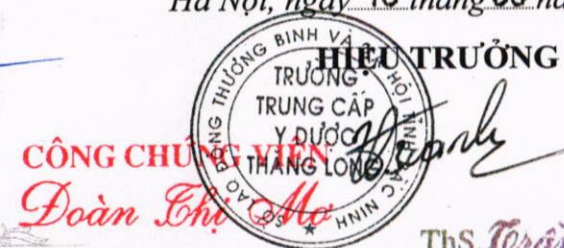 Hà Nội, ngày 10 tháng 08 nă
HIỆU TRƯỞNG
SỞ LAO ĐỘNG THƯƠNG BINH VÀ XÃ HỘI TỈNH BẮC NINH
TRƯỜNG
TRUNG CẤP
Y DƯỢC
THĂNG LONG
CÔNG CHỨNG VIÊN
Đoàn Thị Mơ
ThS Trần